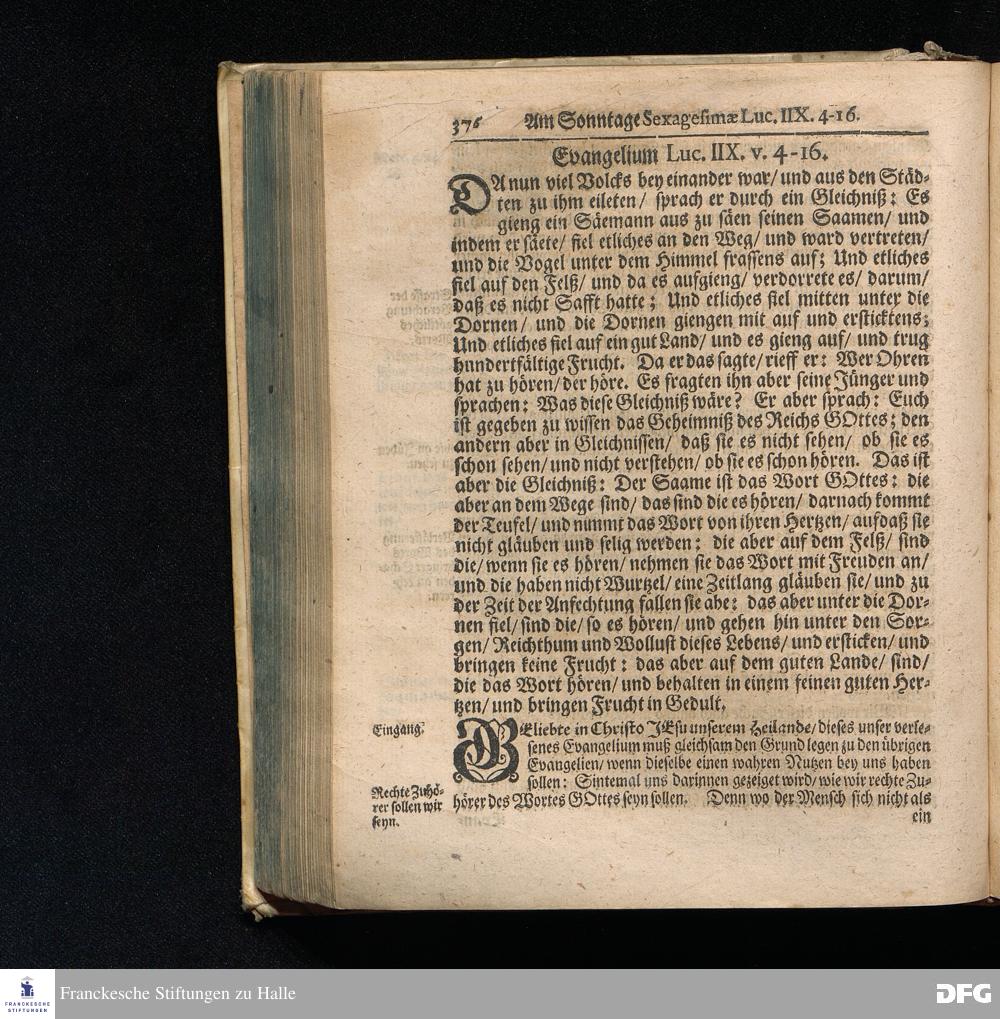 376 Am Sonntage Sexagesimæ Luc. IIX. 4-16.
Evangelium Luc. IIX. v. 4-16.
DA nun viel Volcks bey einander war/ und aus den Städ-
ten zu ihm eileten/ sprach er durch ein Gleichniß: Es
gieng ein Säemann aus zu säen seinen Saamen/ und
indem er säete/ fiel etliches an den Weg/ und ward vertreten/
und die Vogel unter dem Himmel frassens auf; Und etliches
fiel auf den Felß/ und da es aufgieng/ verdorrete es/ darum/
daß es nicht Safft hatte; Und etliches fiel mitten unter die
Dornen/ und die Dornen giengen mit auf und ersticktens;
Und etliches fiel auf ein gut Land/ und es gieng auf/ und trug
hundertfältige Frucht. Da er das sagte/ rieff er: Wer Ohren
hat zu hören/ der höre. Es fragten ihn aber seine Jünger und
sprachen: Was diese Gleichniß wäre? Er aber sprach: Euch
ist gegeben zu wissen das Geheimniß des Reichs GOttes; den
andern aber in Gleichnissen/ daß sie es nicht sehen/ ob sie es
schon sehen/ und nicht verstehen/ ob sie es schon hören. Das ist
aber die Gleichniß: Der Saame ist das Wort GOttes: die
aber an dem Wege sind/ das sind die es hören/ darnach kommt
der Teufel/ und nimmt das Wort von ihren Hertzen/ aufdaß sie
nicht gläuben und selig werden: die aber auf dem Felß/ sind
die/ wenn sie es hören/ nehmen sie das Wort mit Freuden an/
und die haben nicht Wurtzel/ eine Zeitlang gläuben sie/ und zu
der Zeit der Anfechtung fallen sie abe: das aber unter die Dor-
nen fiel/ sind die/ so es hören/ und gehen hin unter den Sor-
gen/ Reichthum und Wollust dieses Lebens/ und ersticken/ und
bringen keine Frucht: das aber auf dem guten Lande/ sind/
die das Wort hören/ und behalten in einem feinen guten Her-
tzen/ und bringen Frucht in Gedult.
Eingang.
GEliebte in Christo JEsu unserem Heilande/ dieses unser verle-
senes Evangelium muß gleichsam den Grund legen zu den übrigen
Evangelien/ wenn dieselbe einen wahren Nutzen bey uns haben
sollen: Sintemal uns darinnen gezeiget wird/ wie wir rechte Zu-
hörer des Wortes GOttes seyn sollen. Denn wo der Mensch sich nicht als
Rechte Zuhö-
rer sollen wir
seyn.
ein
FRANCKESCHE
STIFTUNGEN
Franckesche Stiftungen zu Halle
DFG